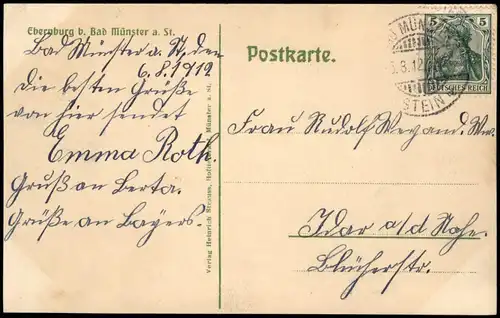 Ebernburg b. Bad Münster a. St.
Bad Münster a. St. den
6.8.1912
Die besten Grüße
von hier sendet
Emma Roth.
Gruß an Berta.
Grüße an Bayers.
Verlag Heinrich Strauss, Münster a. St.
Postkarte.
5 5
DEUTSCHES REICH
BAD MÜNSTER
STEIN
Frau Rudolf Weyand. Ww.
Idar a/d Nahe.
Blücherstr.